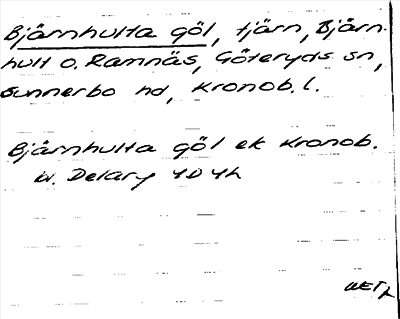 Bjärnhulta göl, tjärn, Bjärn-
hult o. Ramnäs, Göteryds sn,
Sunnerbo hd, Kronob. l.
Bjärnhulta göl ek Kronob.
bl. Delary 4D 4h